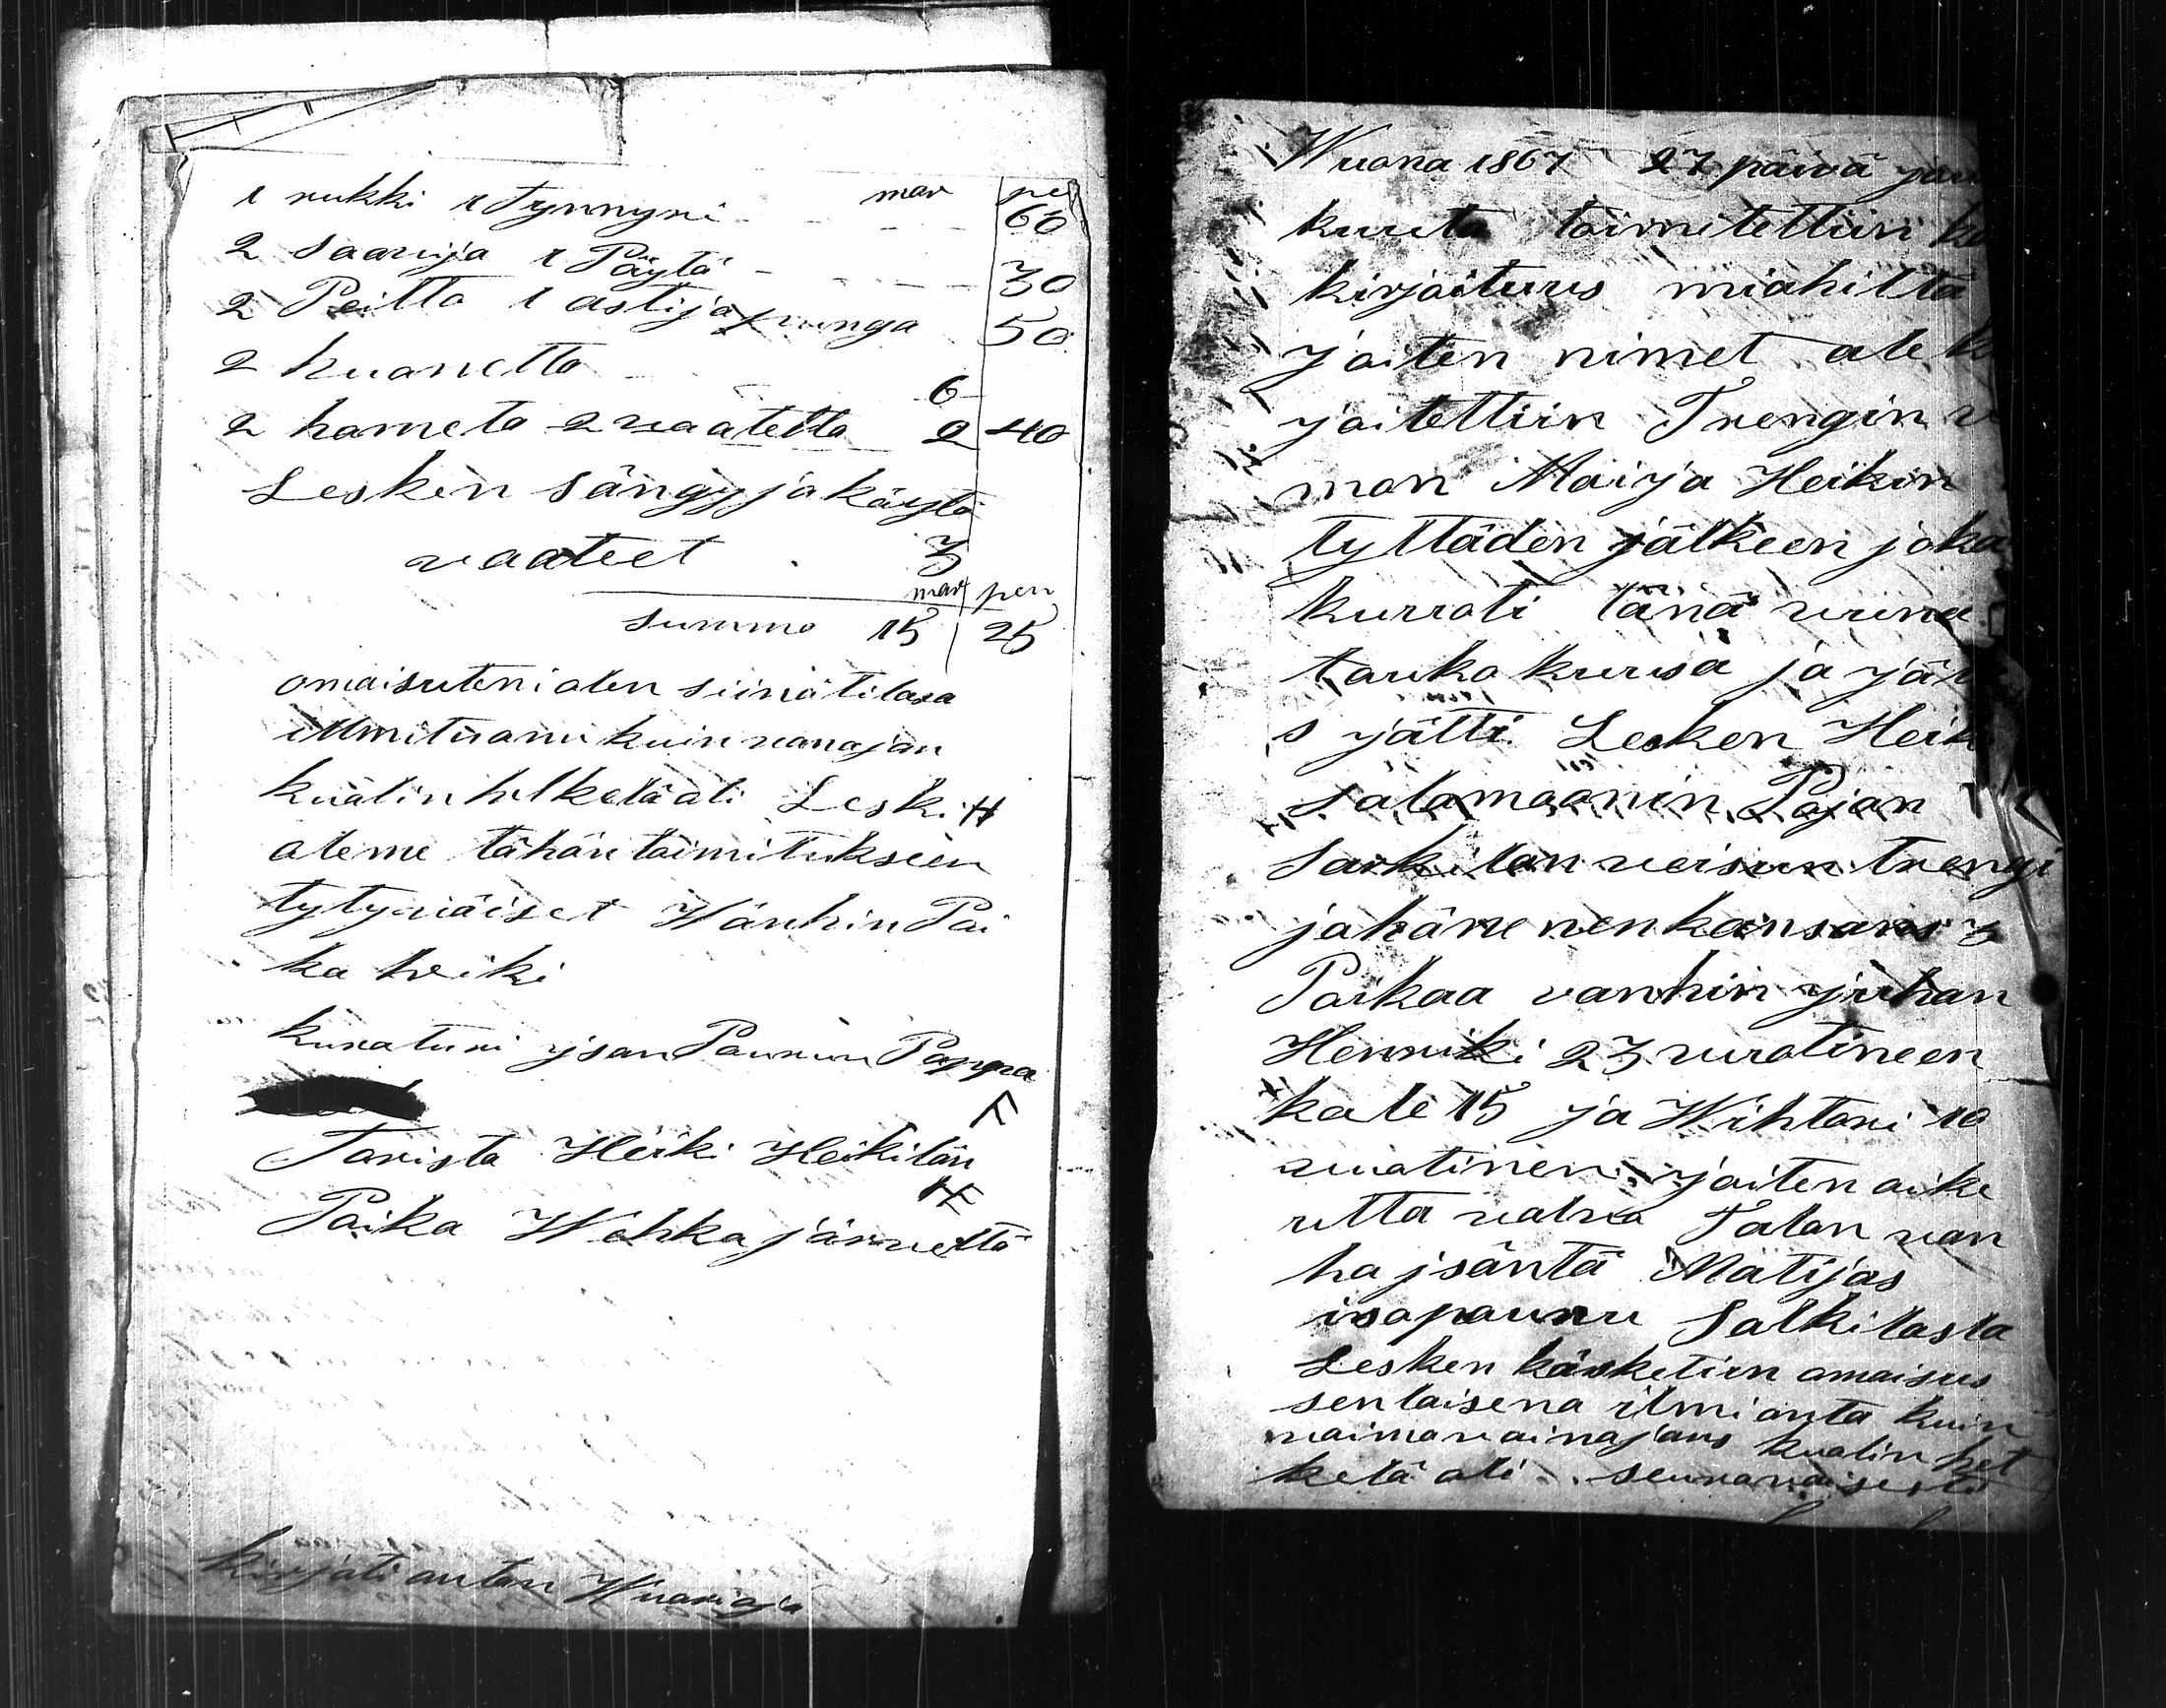 1 rukki 1 Tynnyri mar pe
60
2 saavija 1 Päytä 30
2 Peitto 1 astija punga 50
2 huonetto 6
2 hameto 2 vaatetta 2 40
Lesken sängy ja käytö
vaateet 3
mar pen
summo 15 25
omaisuteni olen siinä tilasa
illmituanu kuin vanajan
kuolin hetkelä oli Leski H
oleme tähän toimitukseen
tytyväiset Wanhin Poi
ka heiki
kuraturi ysan Paunun Pappa
Torista Heiki Heikilän
Poika Wehkajärveltä
kirjoti anton Wuorioja
Wuona 1867 27 päivä
kuuta toimitettiin
kirjoiturus miahiltä
joiten nimet ale
joitettiin Trengin
mon Maija Heikin
tyttäden jälkeen joka
kurroti tänä vuna
touko kuusa ja jän
s jätti Lesken Heik
salomaanin Pojan
Saikilan veisun trengi
ja häne nen kansans 3
Poikaa vanhin juhan
Henriki 23 vuotineen
kale 15 ja Wihtori 10
vuotinen joiten oike
utta valvo Talan van
ha jsäntä Matijas
isopaunu Salkilasta
Lesken käsketiin omaisus
senlaisena ilmi anta kuin
vaimovainajans kuolin het
kelä oli seuravaisesti